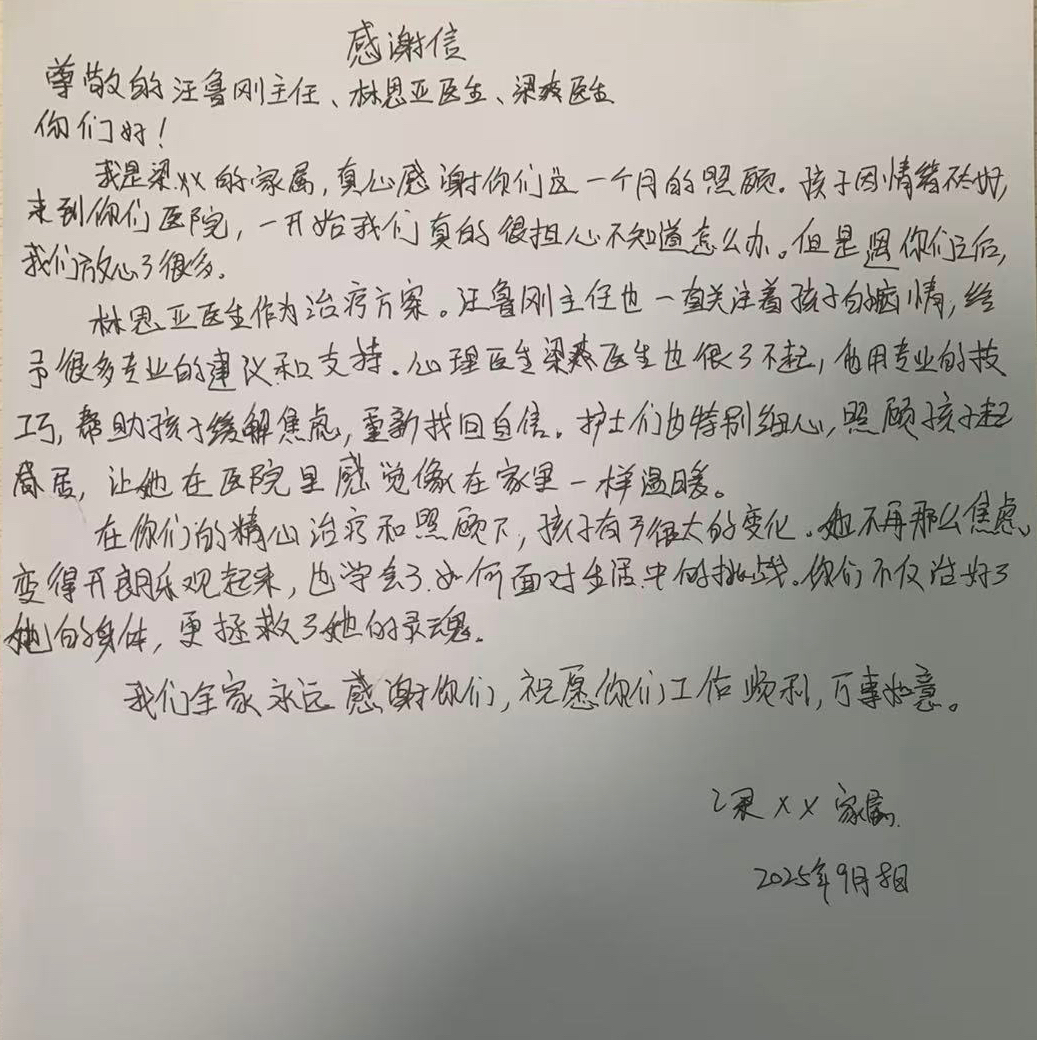 感谢信
尊敬的汪鲁刚主任、林思亚医生、梁爽医生
你们好!
我是梁XX的家属,真心感谢你们这一个月的照顾。孩子因情绪不好,
来到你们医院,一开始我们真的很担心不知道怎么办。但是遇你们之后,
我们放心了很多。
林思亚医生作为治疗方案。汪鲁刚主任也一直关注着孩子的病情,给
予很多专业的建议和支持。心理医生梁爽医生也很了不起,他用专业的技
巧,帮助孩子缓解焦虑,重新找回自信。护士们也特别细心,照顾孩子起
居,让她在医院里感觉像在家里一样温暖。
在你们的精心治疗和照顾下,孩子有了很大的变化。她不再那么焦虑,
变得开朗乐观起来,也学会了如何面对生活中的挑战。你们不仅治好了
她的身体,更拯救了她的灵魂。
我们全家永远感谢你们,祝愿你们工作顺利,万事如意。
梁XX家属
2025年9月8日